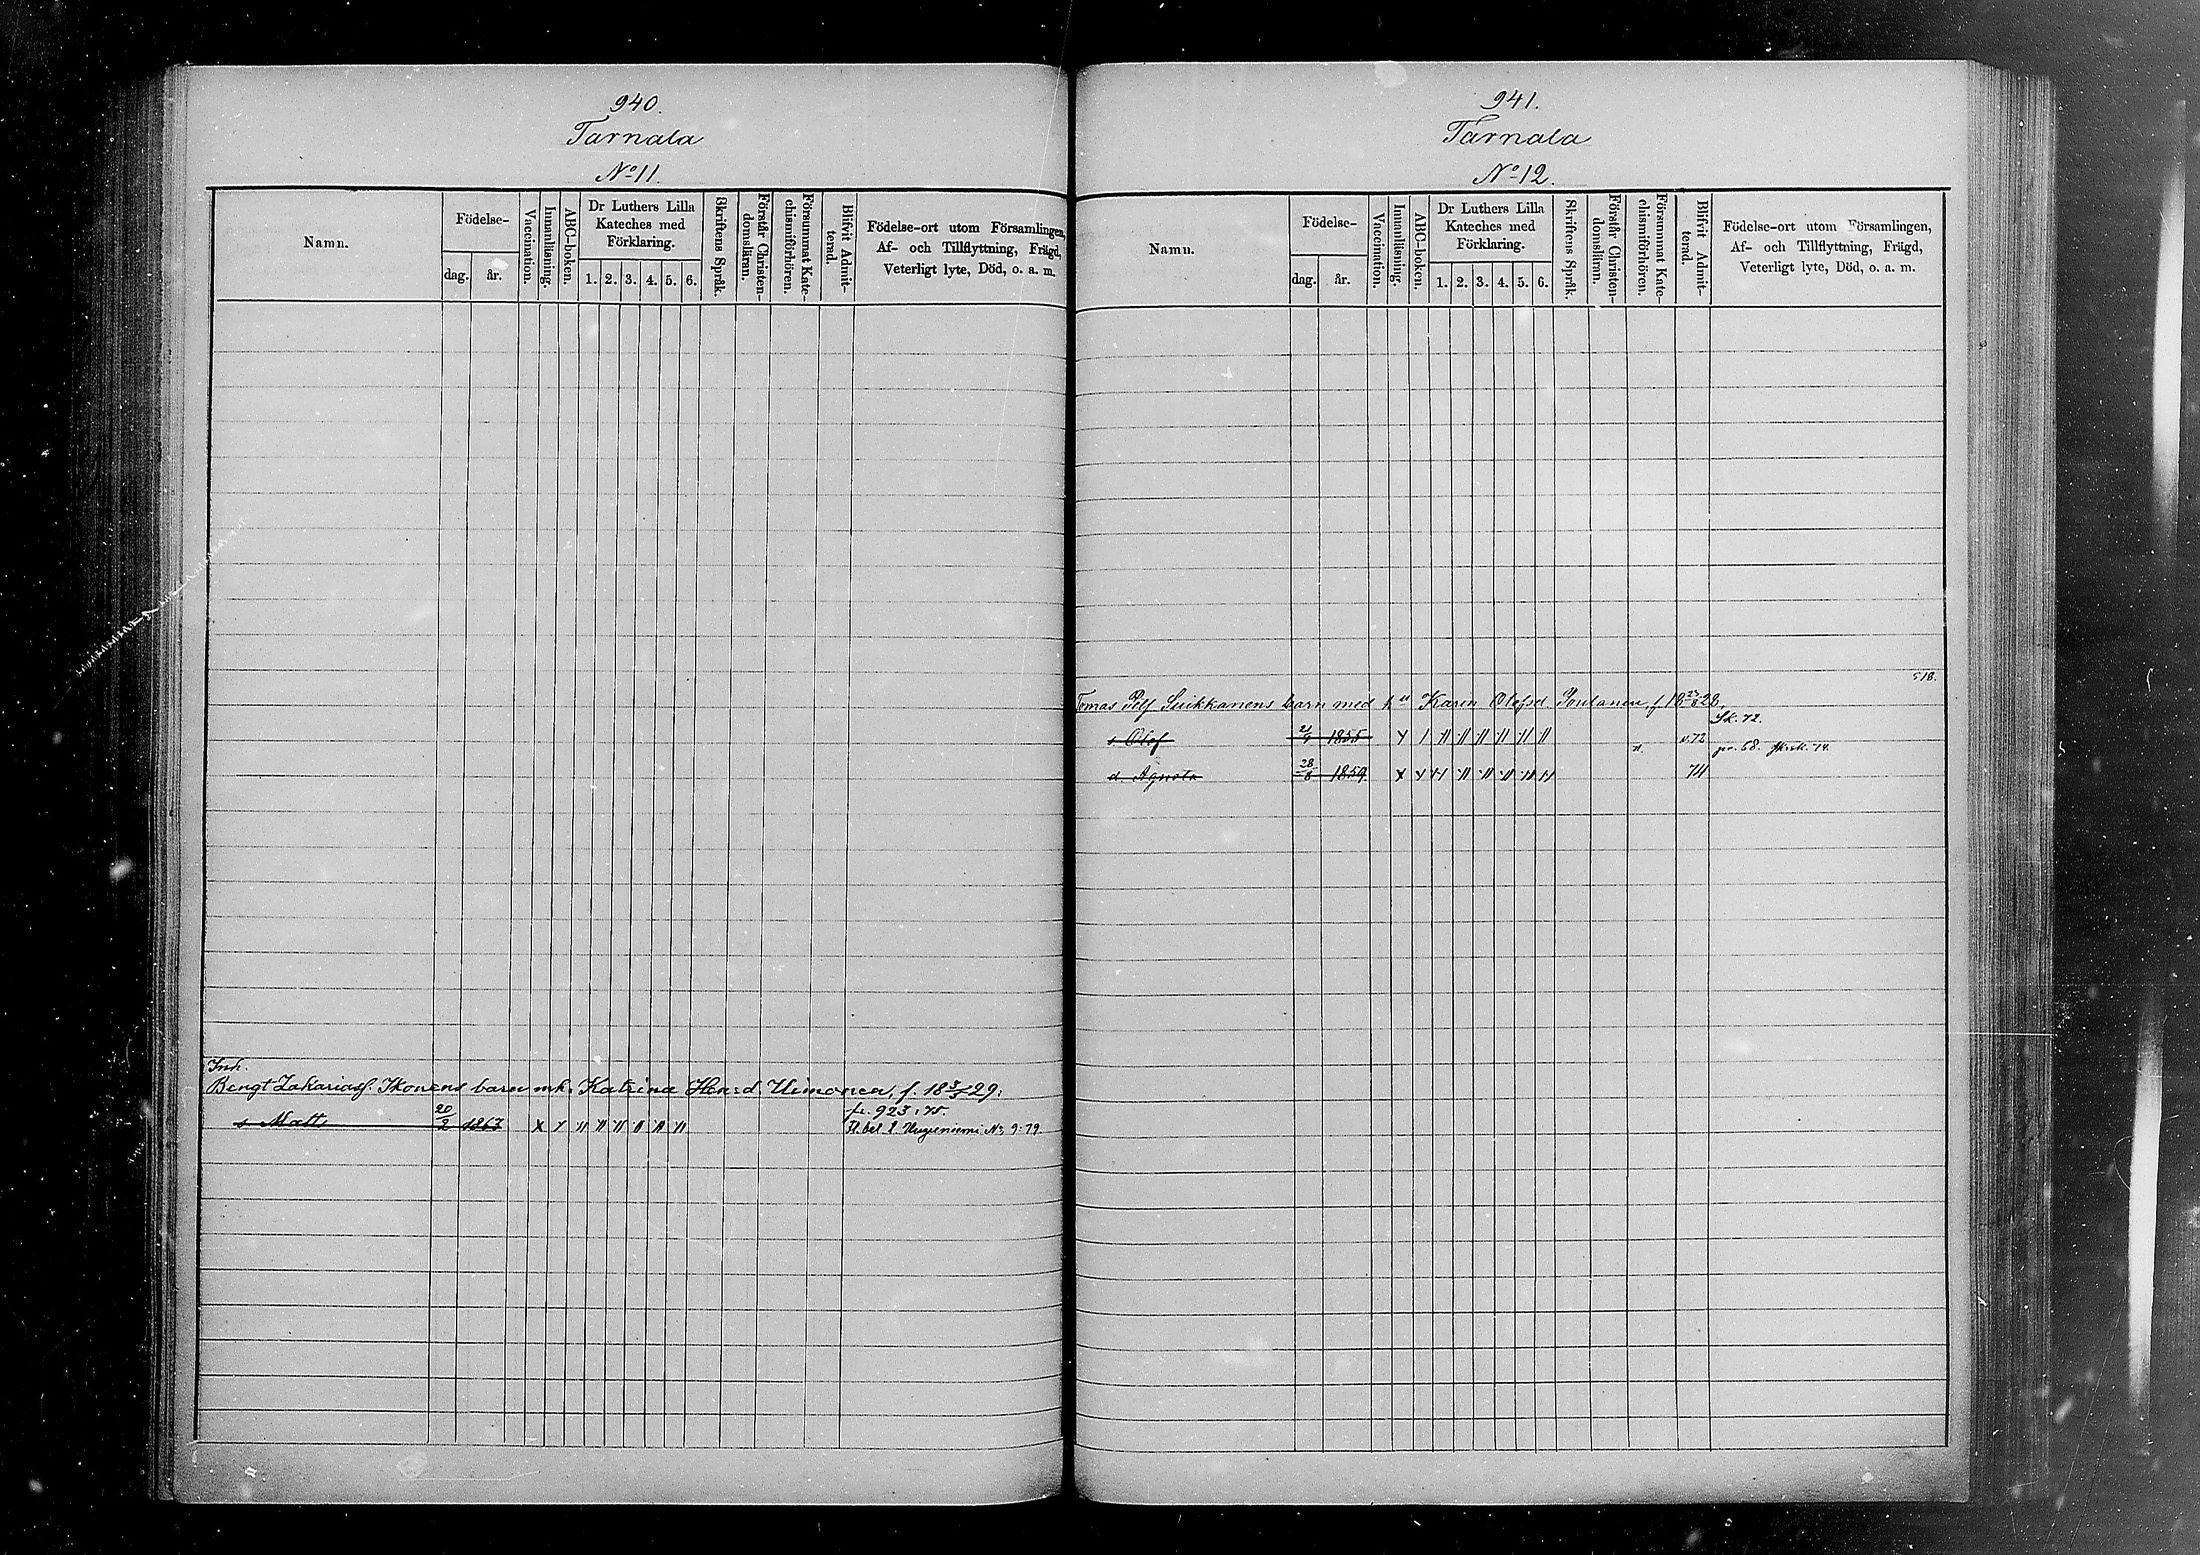 940.
Tarnala
No 11.
Namn.
Födelse-
dag.
år.
Vaccination.
Innanläsning.
ABC-boken.
Dr Luthers Lilla
Kateches med
Förklaring.
1. 2. 3. 4. 5. 6.
Skriftens Språk.
Förstår Christen-
domsläran.
Försummat Kate-
chismiförhören.
Blifvit Admit-
terad.
Födelse-ort utom Församlingen,
Af- och Tillflyttning, Frägd,
Veterligt lyte, Död, o. a. m.
Inh.
Bengt Zakariass. Ikonens barn m h. Katrina Hensd. Uimonen, f. 18 3/3 29.
fr. 923: 75.
s Matts 20/2 1863 No 9: 79.
941.
Tarnala
No 12.
Namn.
Födelse-
dag.
år.
Vaccination.
Innanläsning.
ABC-boken.
Dr Luthers Lilla
Kateches med
Förklaring.
1. 2. 3. 4. 5. 6.
Skriftens Språk.
Förstår Christen-
domsläran.
Försummat Kate-
chismiförhören.
Blifvit Admit-
terad.
Födelse-ort utom Församlingen,
Af- och Tillflyttning, Frägd,
Veterligt lyte, Död, o. a. m.
518.
Tomas Suikkanens barn med hu Karin Olofsd. f 18 28.
Sk. 72.
s Olof 1855 v. 72 68. 74.
d. Agneta 28/8 1859 74